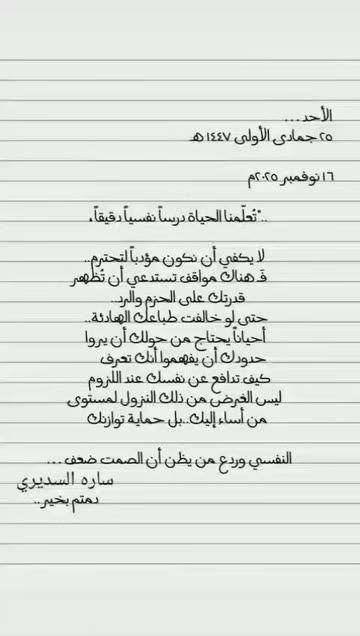 الأحد ...
٢٥ جمادى الأولى ١٤٤٧ هـ
١٦ نوفمبر ٢٠٢٥م
.."تُعلّمنا الحياة درساً نفسياً دقيقاً،
لا يكفي أن نكون مؤدباً لتحترم..
فَـ هناك مواقف تستدعي أن تُظهر
قدرتك على الحزم والرد..
حتى لو خالفت طباعك الهادئة..
أحياناً يحتاج من حولك أن يروا
حدودك أن يفهموا أنك تعرف
كيف تدافع عن نفسك عند اللزوم
ليس الغرض من ذلك النزول لمستوى
من أساء إليك..بل حماية توازنك
النفسي وردع من يظن أن الصمت ضعف ...
ساره السديري
دمتم بخير..